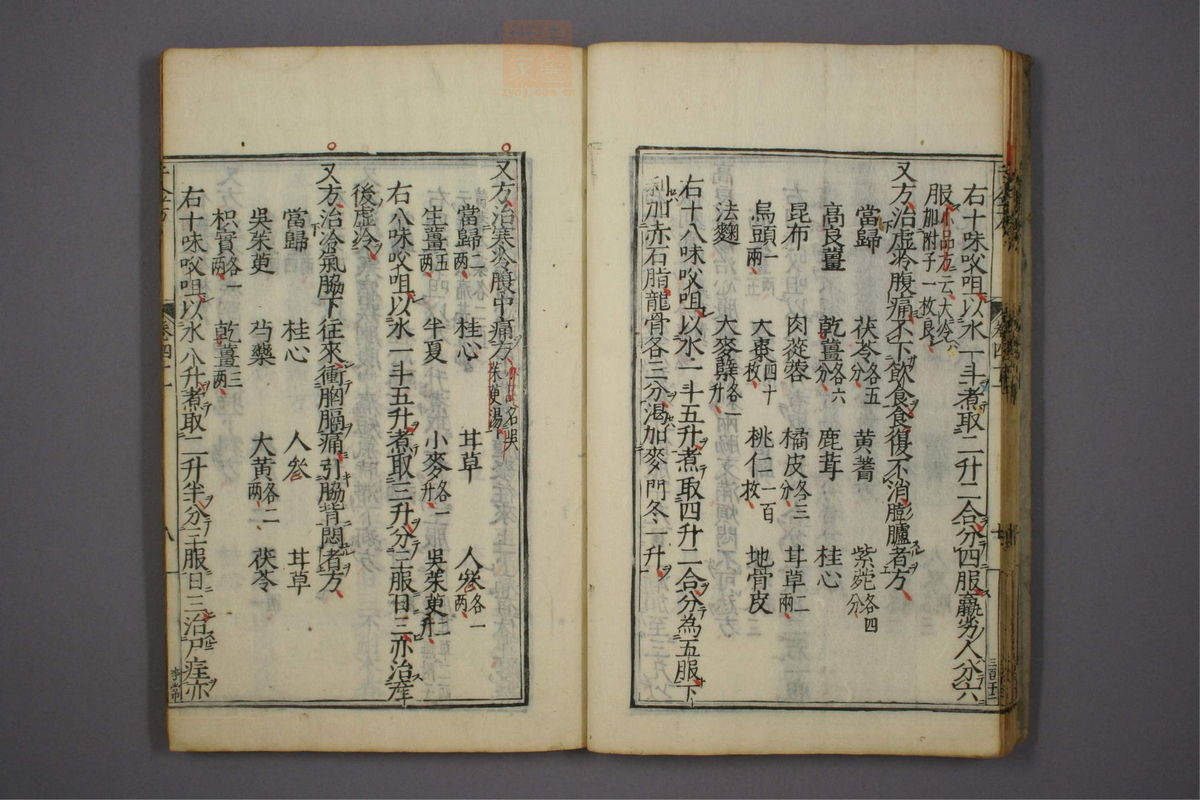 右十味㕮咀以水一斗煮取二升二合分四服羸劣人分六
服 小品方云大冷加附子一枚良
又方治虚冷腹痛不下飲食食復不消膨臚者方
當歸 茯苓各五分 黄蓍 紫菀各四分
高良薑 乾薑各六分 鹿茸 桂心
昆布 肉蓯蓉 橘皮各三分 甘草二兩
烏頭一兩 大棗四十枚 桃仁一百枚 地骨皮
法麴 大麥糵各一升
右十八味㕮咀以水一斗五升煮取四升二合分為五服下
利加赤石脂龍骨各三分渴加麥門冬一升
又方治寒冷腹中痛方 茱萸湯
當歸二兩 桂心 甘草 人參各一兩
生薑五兩 半夏 小麥各一升 吳茱萸二升
右八味㕮咀以水一斗五升煮取三升分三服日三亦治産
後虚冷
又方治冷氣脇下往來衝胸膈痛引脇背悶者方
當歸 桂心 人參 甘草
吳茱萸 芍藥 大黄各二兩 茯苓
枳實各一兩 乾薑三兩
右十味㕮咀以水八升煮取二升半分三服日三治尸疰亦
卷四十二
八